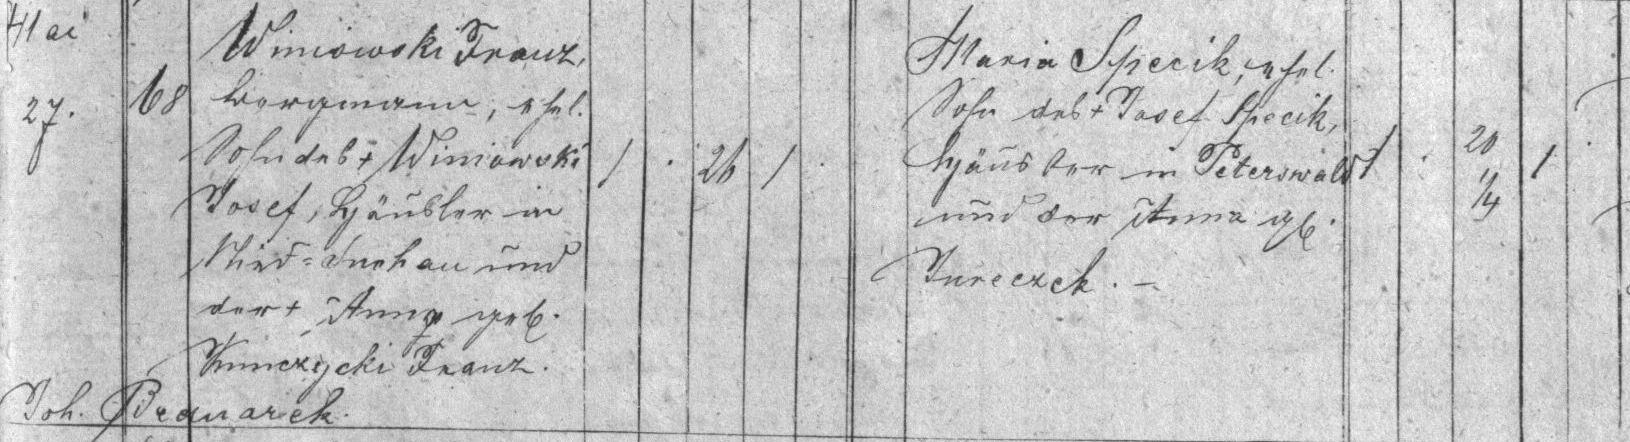 Mai
27.
68
Winiowski Franz,
Bergmann, ehel.
Sohn des + Winiowski
Josef, Häusler in
Nied-Suchau und
der + Anna geb.
Kunczycki Franz.
Joh. Bednarek.
1 . 26 1 .
Maria Specik, ehel.
Sohn des + Josef Specik,
Häusler in Peterswald
und der Anna gb.
Jureczek. –
1 . 20 1/4 1 .